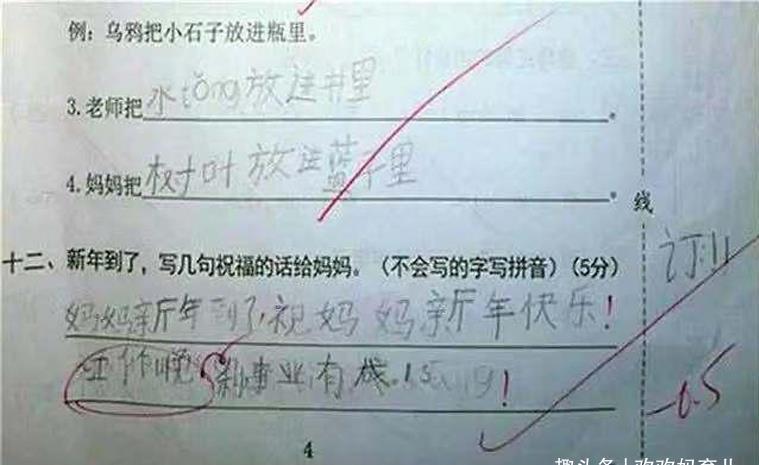 例：乌鸦把小石子放进瓶里。
3.老师把水tǒng放进井里。
4.妈妈把树叶放进蓝子里。
线
十二、新年到了，写几句祝福的话给妈妈。（不会写的字写拼音）（5分）
订:11
妈妈新年到了,祝妈妈新年快乐！
工作 事业有成.！
-0.5
4
趣头条 / 欢欢妈育儿